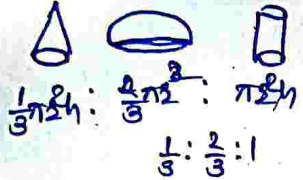 1/3 πr²h : 2/3 πr³ : πr²h
1/3 : 2/3 : 1